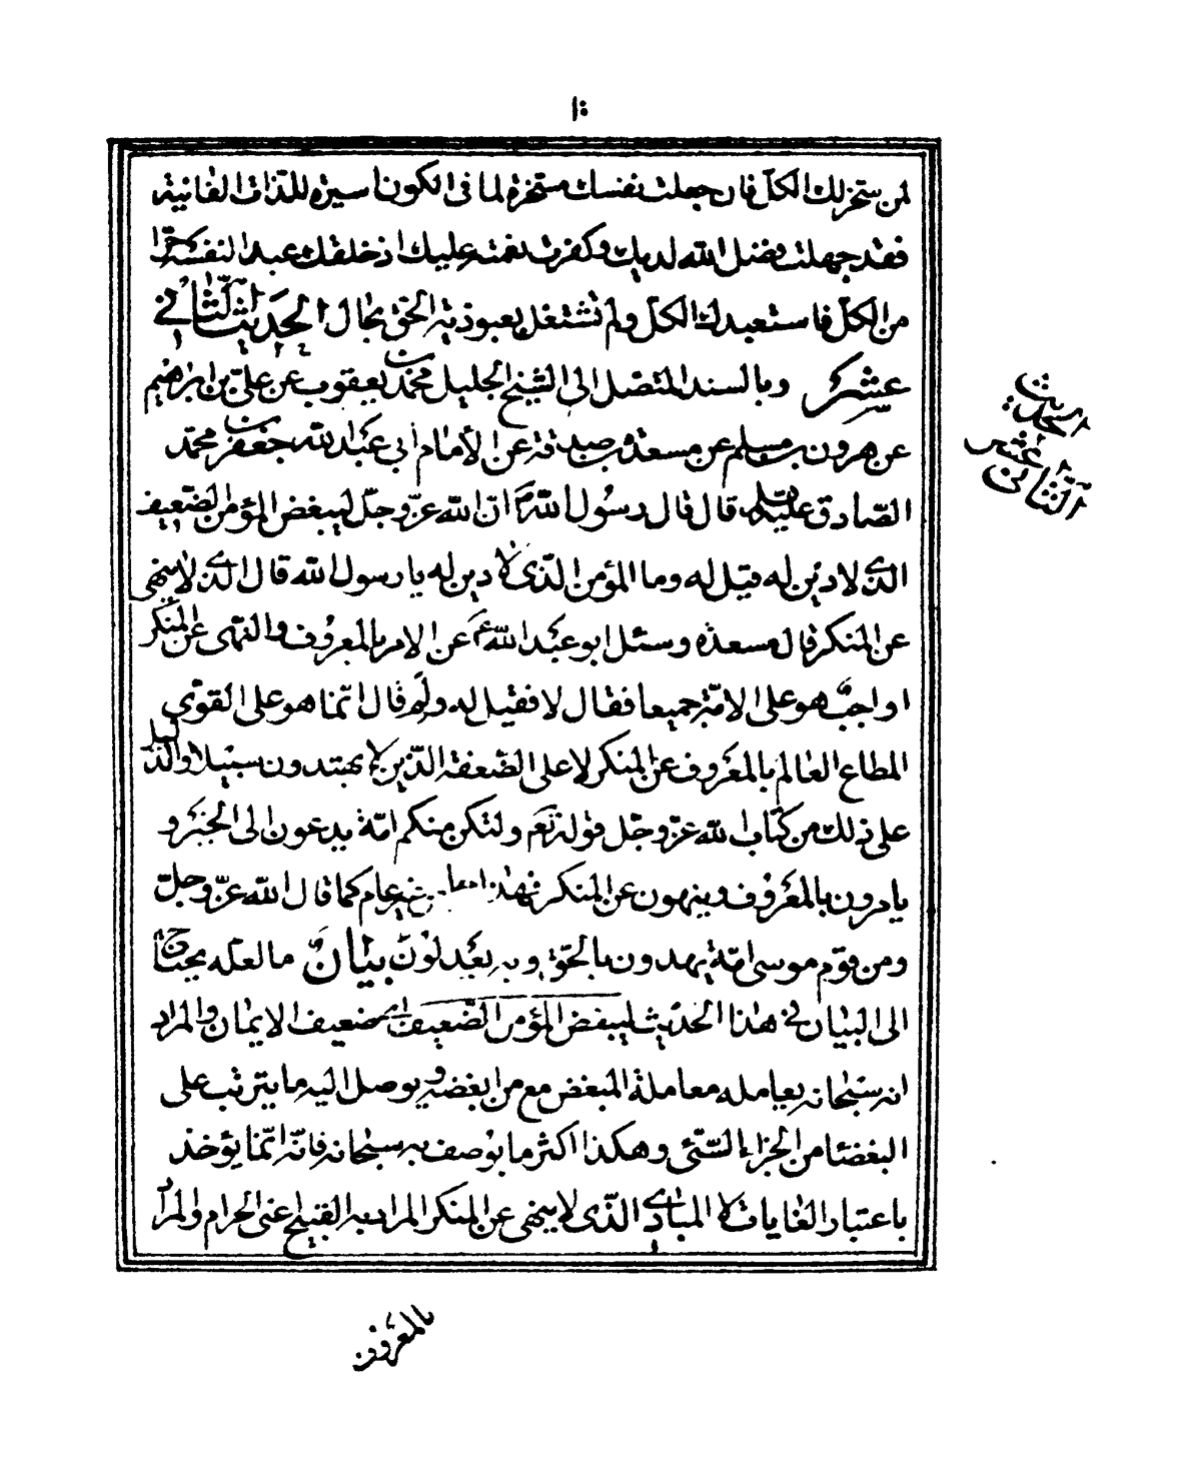 ١٠
لمن سخر لك الكل فان جعلت نفسك مسخرة لما فى الكون اسيرة للذات الفانية
فقد جهلت فضل الله لديك وكفرت نعمته عليك اذ خلقك عبدا لنفسه حرا
من الكل فاستعبدك الكل ولم تشتغل بعبودية الحق بحال الحديث الثانى
عشر وبالسند المتصل الى الشيخ الجليل محمد بن يعقوب عن على بن ابراهيم
عن هرون بن مسلم عن مسعدة بن صدقة عن الامام ابى عبد الله جعفر بن محمد
الصادق عليه السلام قال قال رسول الله ص ان الله عز وجل ليبغض المؤمن الضعيف
الذى لا دين له فقيل له وما المؤمن الذى لا دين له يا رسول الله قال الذى لا ينهى
عن المنكر قال مسعدة وسئل ابو عبد الله ع عن الامر بالمعروف والنهى عن المنكر
اواجب هو على الامة جميعا فقال لا فقيل له ولم قال انما هو على القوى
المطاع العالم بالمعروف عن المنكر لا على الضعفة الذين لا يهتدون سبيلا والدليل
على ذلك من كتاب الله عز وجل قوله تعم ولتكن منكم امة يدعون الى الخير و
يامرون بالمعروف وينهون عن المنكر فهذا غير عام كما قال الله عز وجل
ومن قوم موسى امة يهدون بالحق وبه يعدلون بيان ما لعله يحتاج
الى البيان فى هذا الحديث ليبغض المؤمن الضعيف اى ضعيف الايمان والمراد
انه سبحانه يعامله معاملة المبغض مع من ابغضه ويوصل اليه ما يترتب على
البغضا من الجزاء السئ وهكذا اكثر ما يوصف به سبحانه فانه انما يؤخذ
باعتبار الغايات لا المبادى الذى لا ينهى عن المنكر المراد به القبيح اعنى الحرام والمراد
بالمعروف
الحديث
الثانى عشر